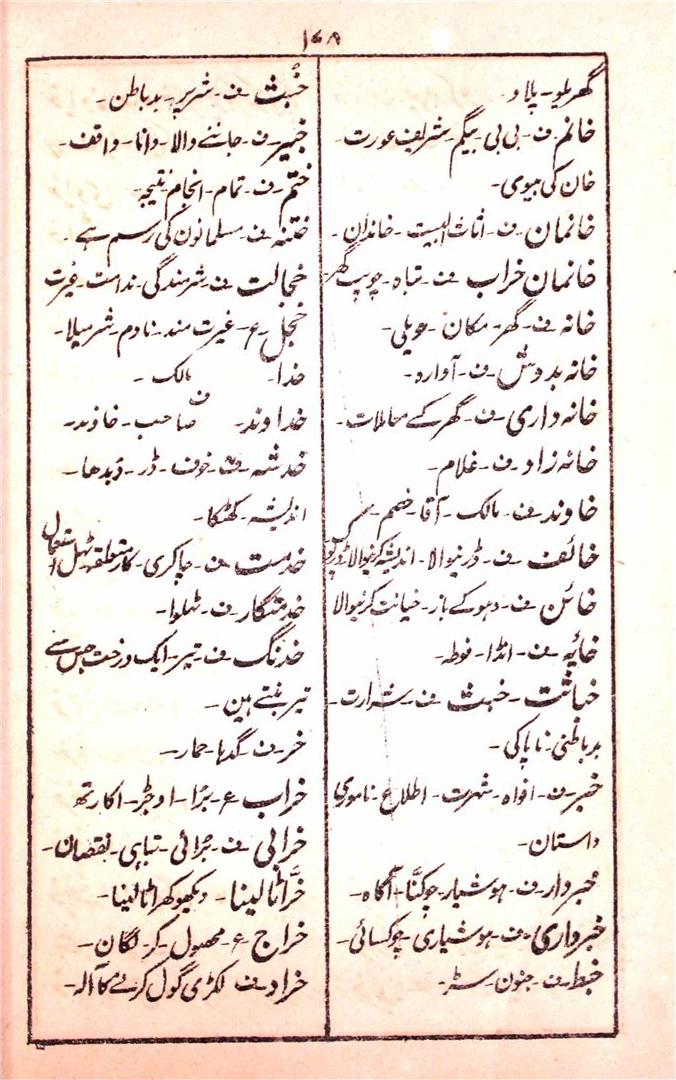 ۱۷۸
گھریلو۔ پلاو۔
خانم ف۔ بی بی بیگم۔ شریف عورت۔
خان کی بیوی۔
خانمان ف۔ اثاث البیت۔ خاندان۔
خانمان خراب ف۔ تباہ۔ چوپٹ گھر۔
خانہ ف۔ گھر۔ مکان۔ حویلی۔
خانہ بدوش ف۔ آوارہ۔
خانہ داری۔ ف۔ گھر کے معاملات۔
خانہ زاد۔ ف۔ غلام۔
خاوند ف۔ مالک۔ آقا۔ خصم۔
خائف ف۔ ڈرنیوالا۔ اندیشہ کرنیوالا
خائن ف۔ دہوکے باز۔ خیانت کرنیوالا
خایہ ف۔ انڈا۔ فوطہ۔
خباثت۔ خبث ف۔ شرارت۔
بدباطنی۔ ناپاکی۔
خبر ف۔ افواہ۔ شہرت۔ اطلاع۔ ناموری
داستان۔
خبردار ف۔ ہوشیار۔ چوکنّا۔ آگاہ۔
خبرداری ف۔ ہوشیاری۔ چوکسائی۔
خبط ف۔ جنون۔ سٹر۔
خُبث ف۔ شریر۔ بدباطن۔
خبیر ف۔ جاننے والا۔ دانا۔ واقف۔
ختم ف۔ تمام۔ انجام۔ نتیجہ۔
ختنہ ف۔ مسلمانون کی رسم ہے۔
خجالت ف۔ شرمندگی۔ ندامت۔ غیرت
خجل۔ ع۔ غیرت مند۔ نادم۔ شرمیلا۔
خدا۔ مالک۔
خداوند۔ ف صاحب۔ خاوند۔
خدشہ ف۔ خوف۔ ڈر۔ دُبدھا۔
اندیشہ۔ کھٹکا۔
خدمت ف۔ چاکری۔ کار متعلقہ۔ ٹہل۔ استعمال
خدمتگار۔ ف۔ ٹہلوا۔
خدنگ ف۔ تیر۔ ایک درخت جس سے
تیر بنتے ہین۔
خر۔ ف۔ گدہا۔ حمار۔
خراب ع۔ بُرا۔ اوجڑ۔ اکارتھ
خرابی ف۔ بُرائی۔ تباہی۔ نقصان۔
خرّاٹا لینا۔ دیکھو کھراٹا لینا۔
خراج ع۔ محصول۔ کر۔ لگان۔
خراد ف لکڑی گول کرنے کا آلہ۔